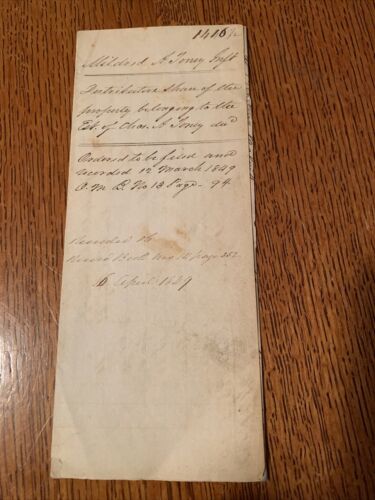 1416½
Mildred A Toney Inft
Distributive Share of the
property belonging to the
Est. of Chas. A Toney decd
Ordered to be filed and
recorded 12 March 1849
O. M. B. No 13 Page - 94
Recorded in
Record Book No 14 page 252
6 April 1849